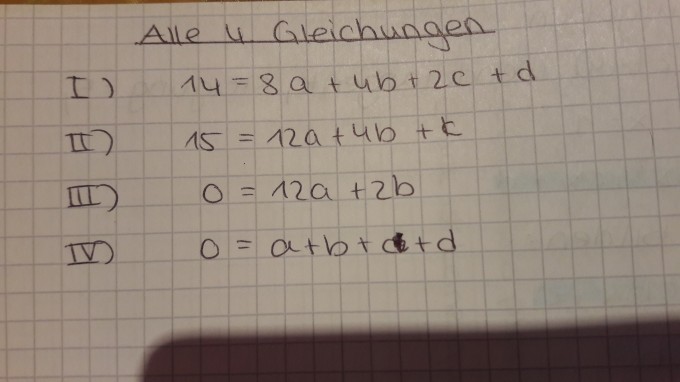 Alle 4 Gleichungen
I) 14 = 8a + 4b + 2c + d
II) 15 = 12a + 4b + c
III) 0 = 12a + 2b
IV) 0 = a + b + c + d